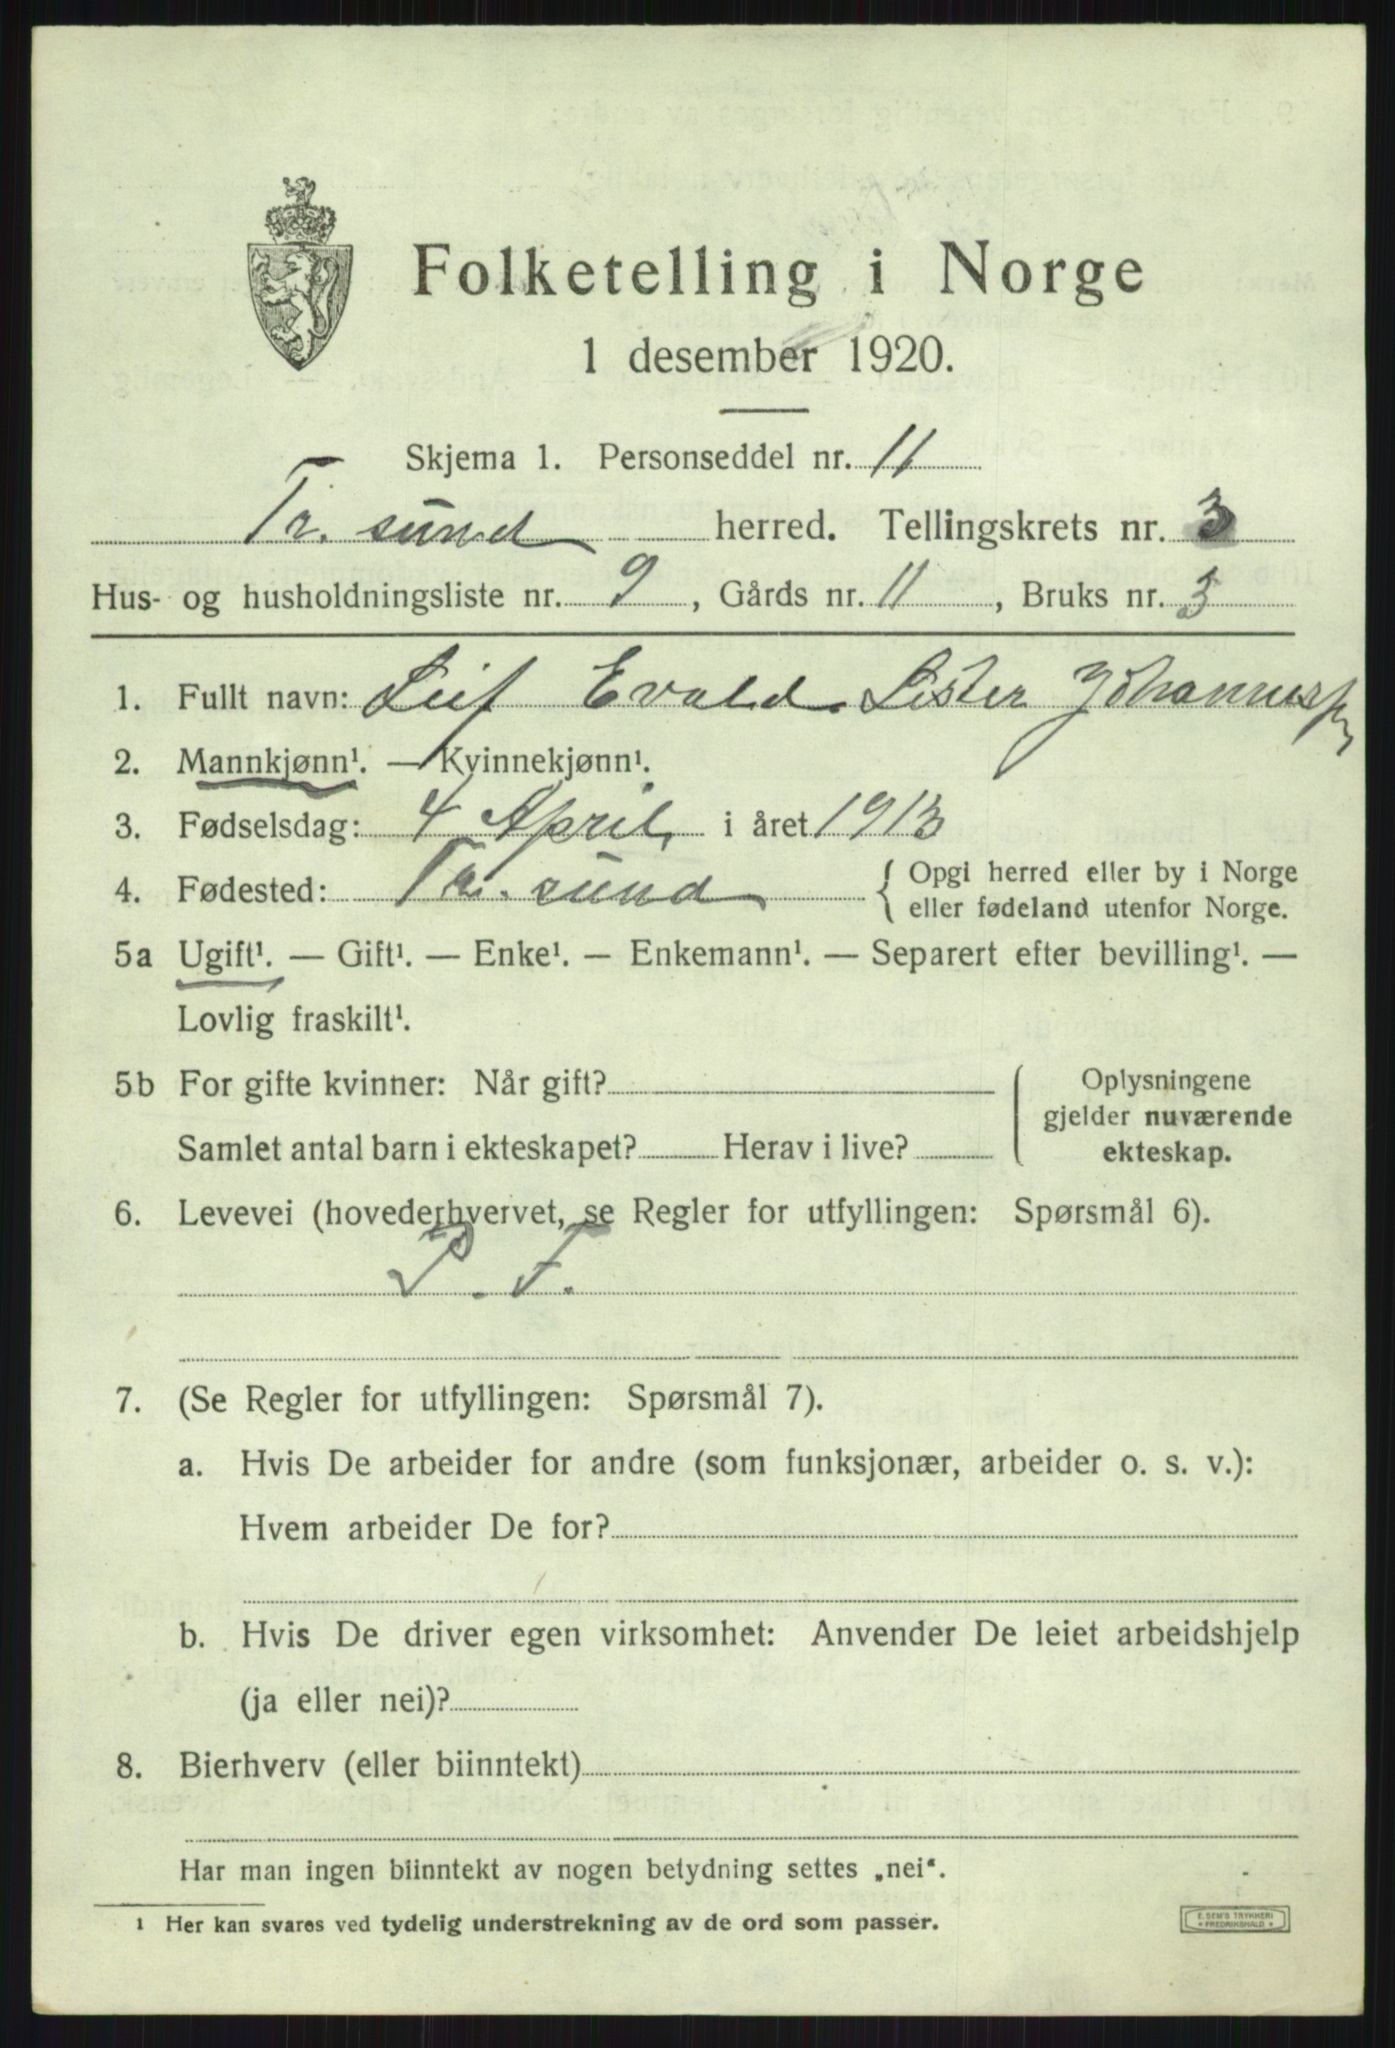 Folketelling i Norge
1 desember 1920.
Skjema 1. Personseddel nr. 11
Tr. sund herred. Tellingskrets nr. 3
Hus- og husholdningsliste nr. 9, Gårds nr. 11, Bruks nr. 3
1. Fullt navn: Leif Evald Lister Johannes
2. Mannkjønn¹. — Kvinnekjønn¹.
3. Fødselsdag: 4 April i året 1913
4. Fødested: Tr. sund { Opgi herred eller by i Norge
eller fødeland utenfor Norge.
5a Ugift¹. — Gift¹. — Enke¹. — Enkemann¹. — Separert efter bevilling¹. —
Lovlig fraskilt¹.
5b For gifte kvinner: Når gift? ( Oplysningene
gjelder nuværende
Samlet antal barn i ekteskapet? Herav i live? ekteskap.
6. Levevei (hovederhvervet, se Regler for utfyllingen: Spørsmål 6).
P. F.
7. (Se Regler for utfyllingen: Spørsmål 7).
a. Hvis De arbeider for andre (som funksjonær, arbeider o. s. v.):
Hvem arbeider De for?
b. Hvis De driver egen virksomhet: Anvender De leiet arbeidshjelp
(ja eller nei)?
8. Bierhverv (eller biinntekt)
Har man ingen biinntekt av nogen betydning settes „nei“.
1 Her kan svares ved tydelig understrekning av de ord som passer.
E. SEM'S TRYKKERI
* FREDRIKSHALD *